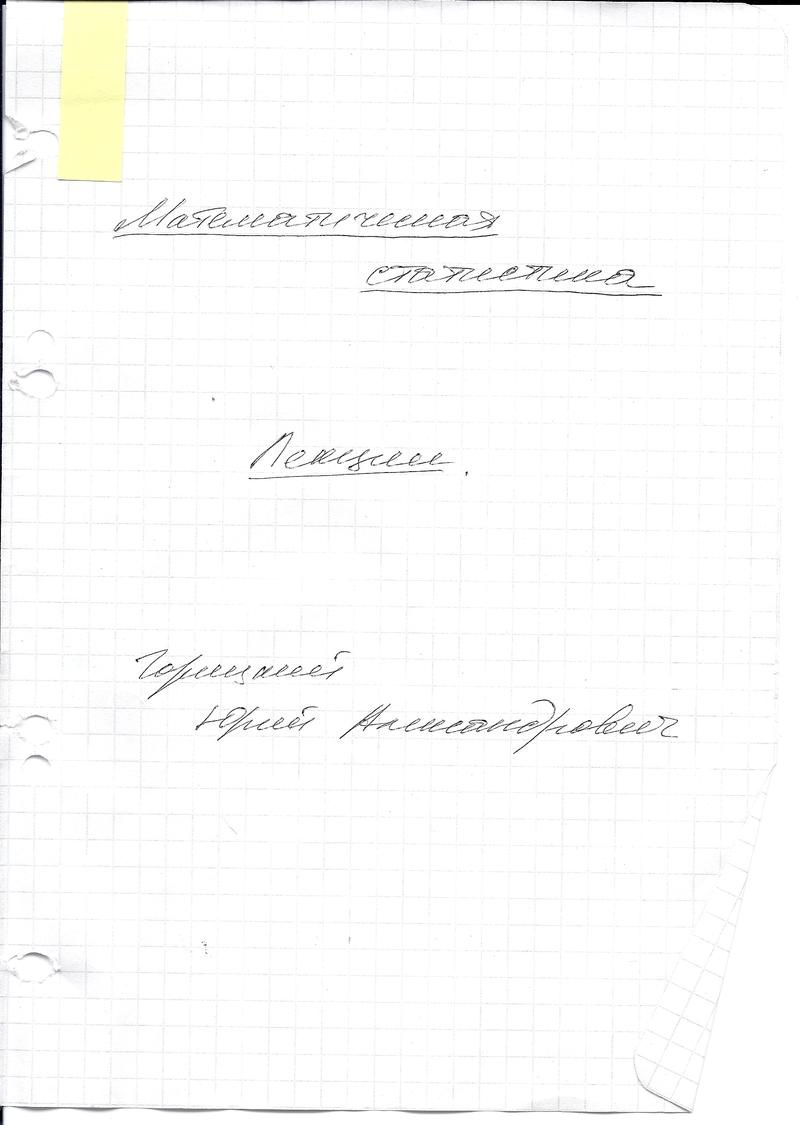 Математическая
статистика
Лекции.
Горицкий
Юрий Александрович